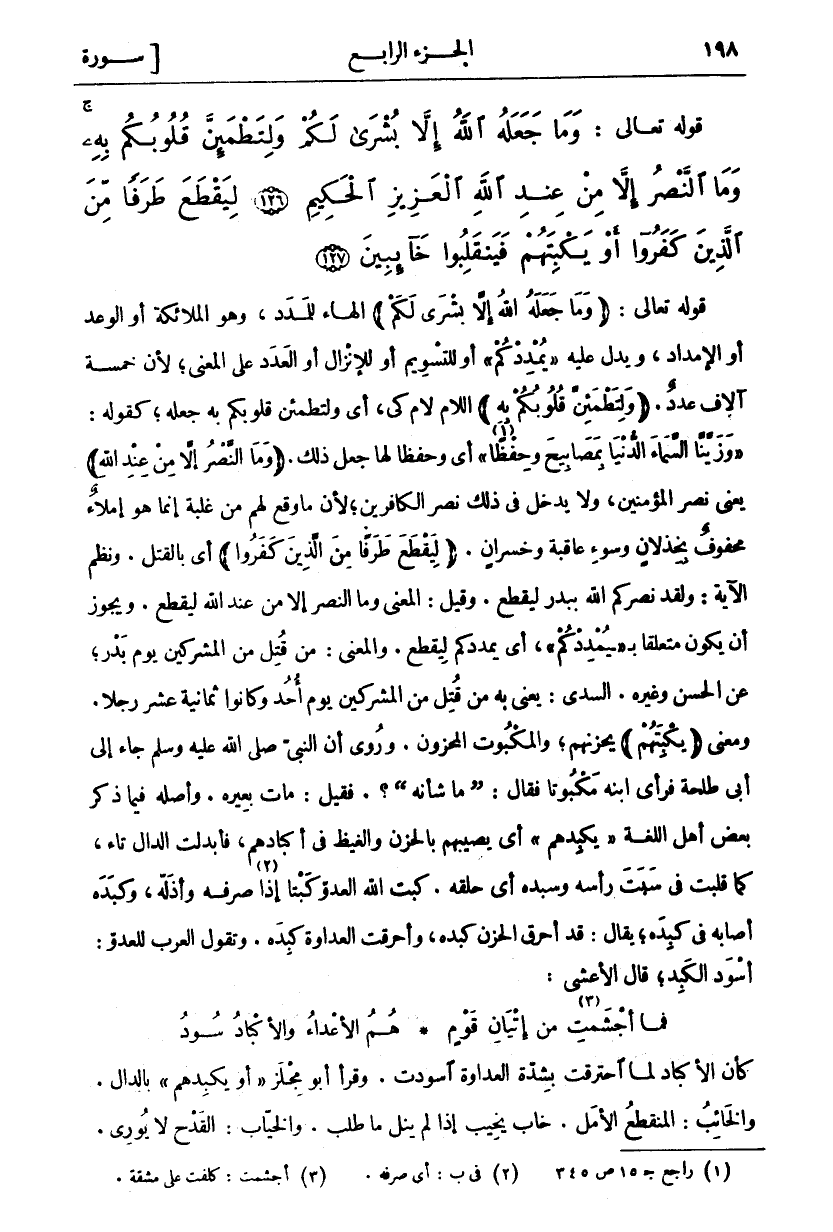 ١٩٨ الجـزء الرابـع [ ســورة
قوله تعـالى : وَمَا جَعَلَهُ ٱللَّهُ إِلَّا بُشْرَىٰ لَكُمْ وَلِتَطْمَئِنَّ قُلُوبُكُم بِهِۦ ۗ
وَمَا ٱلنَّصْرُ إِلَّا مِنْ عِندِ ٱللَّهِ ٱلْعَزِيزِ ٱلْحَكِيمِ ﴿١٢٦﴾ لِيَقْطَعَ طَرَفًا مِّنَ
ٱلَّذِينَ كَفَرُوٓا أَوْ يَكْبِتَهُمْ فَيَنقَلِبُوا خَآئِبِينَ ﴿١٢٧﴾
قوله تعالى : ﴿ وَمَا جَعَلَهُ اللهُ إِلَّا بُشْرَى لَكُمْ ﴾ الهـاء للمَـدَد ، وهو الملائكة أو الوعد
أو الإمداد ، ويدل عليه «يُمْدِدْكُمْ» أو للتسْوِيم أو للإِنْزال أو العَدَد على المعنى؛ لأن خمسـة
آلاف عددٌ . ﴿ وَلِتَطْمَئِنَّ قُلُوبُكُمْ بِهِ ﴾ اللام لام كى، أى ولتطمئن قلوبكم به جعله ؛ كقوله :
«وَزَيَّنَّا السَّمَاءَ الدُّنْيَا بِمَصَابِيحَ وحِفْظًا» (١) أى وحفظا لها جعل ذلك . ﴿وَمَا النَّصْرُ إِلَّا مِنْ عِنْدِ اللهِ﴾
يعنى نصر المؤمنين، ولا يدخل فى ذلك نصر الكافرين؛ لأن ماوقع لهم من غلبة إنما هو إملاءٌ
محفوفٌ بِخِذلانٍ وسوءِ عاقبة وخسرانٍ . ﴿ لِيَقْطَعَ طَرَفًا مِنَ الَّذِينَ كَفَرُوا ﴾ أى بالقتل . ونظم
الآية : ولقد نصركم الله ببدر ليقطع . وقيل : المعنى وما النصر إلا من عند الله ليقطع . ويجوز
أن يكون متعلقا بـ«ـيُمْدِدْكُمْ» ، أى يمددكم لِيقطع . والمعنى : من قُتِل من المشركين يوم بَدْر؛
عن الحسن وغيره . السدى : يعنى به من قُتِل من المشركين يوم أُحُد وكانوا ثمانية عشر رجلا.
ومعنى ﴿ يَكْبِتَهُمْ ﴾ يحزنهم؛ والمكْبُوت المحزون . ورُوى أن النبىّ صلى الله عليه وسلم جاء إلى
أبى طلحة فرأى ابنه مَكْبُوتا فقال : ”ما شأنه“ ؟ . فقيل : مات بعيره . وأصله فيما ذكر
بعض أهل اللغـة « يكبِدهم » أى يصيبهم بالحزن والغيظ فى أكبادهم، فأبدلت الدال تاء ،
كما قلبت فى سَبَتَ رأسه وسبده أى حلقه . كبت الله العدوّ كَبْتا إذا (٢) صرفـه وأذلّه ، وكَبَدَه
أصابه فى كبِدَه؛ يقال : قد أحرق الحزن كبده، وأحرقت العداوة كبِدَه . وتقول العرب للعدوّ :
أسْوَد الكَبِد؛ قال الأعشى :
فمـا أجْشَمتِ (٣) من إِتْيَانِ قَوْمٍ * هُـمُ الأعداءُ والأكبادُ سُـودُ
كأن الأكباد لمـا ٱحترقت بِشدّة العداوة ٱسودت . وقرأ أبو مِجْلَز « أو يكبدهم » بالدال .
والخَائِبُ : المنقطعُ الأمَل . خاب يَخِيب إذا لم ينل ما طلب . والخيّاب : القَدْح لا يُورِى .
(١) راجع جـ ١٥ ص ٣٤٥ (٢) فى ب : أى صرفه . (٣) أجشمت : كلفت على مشقة .